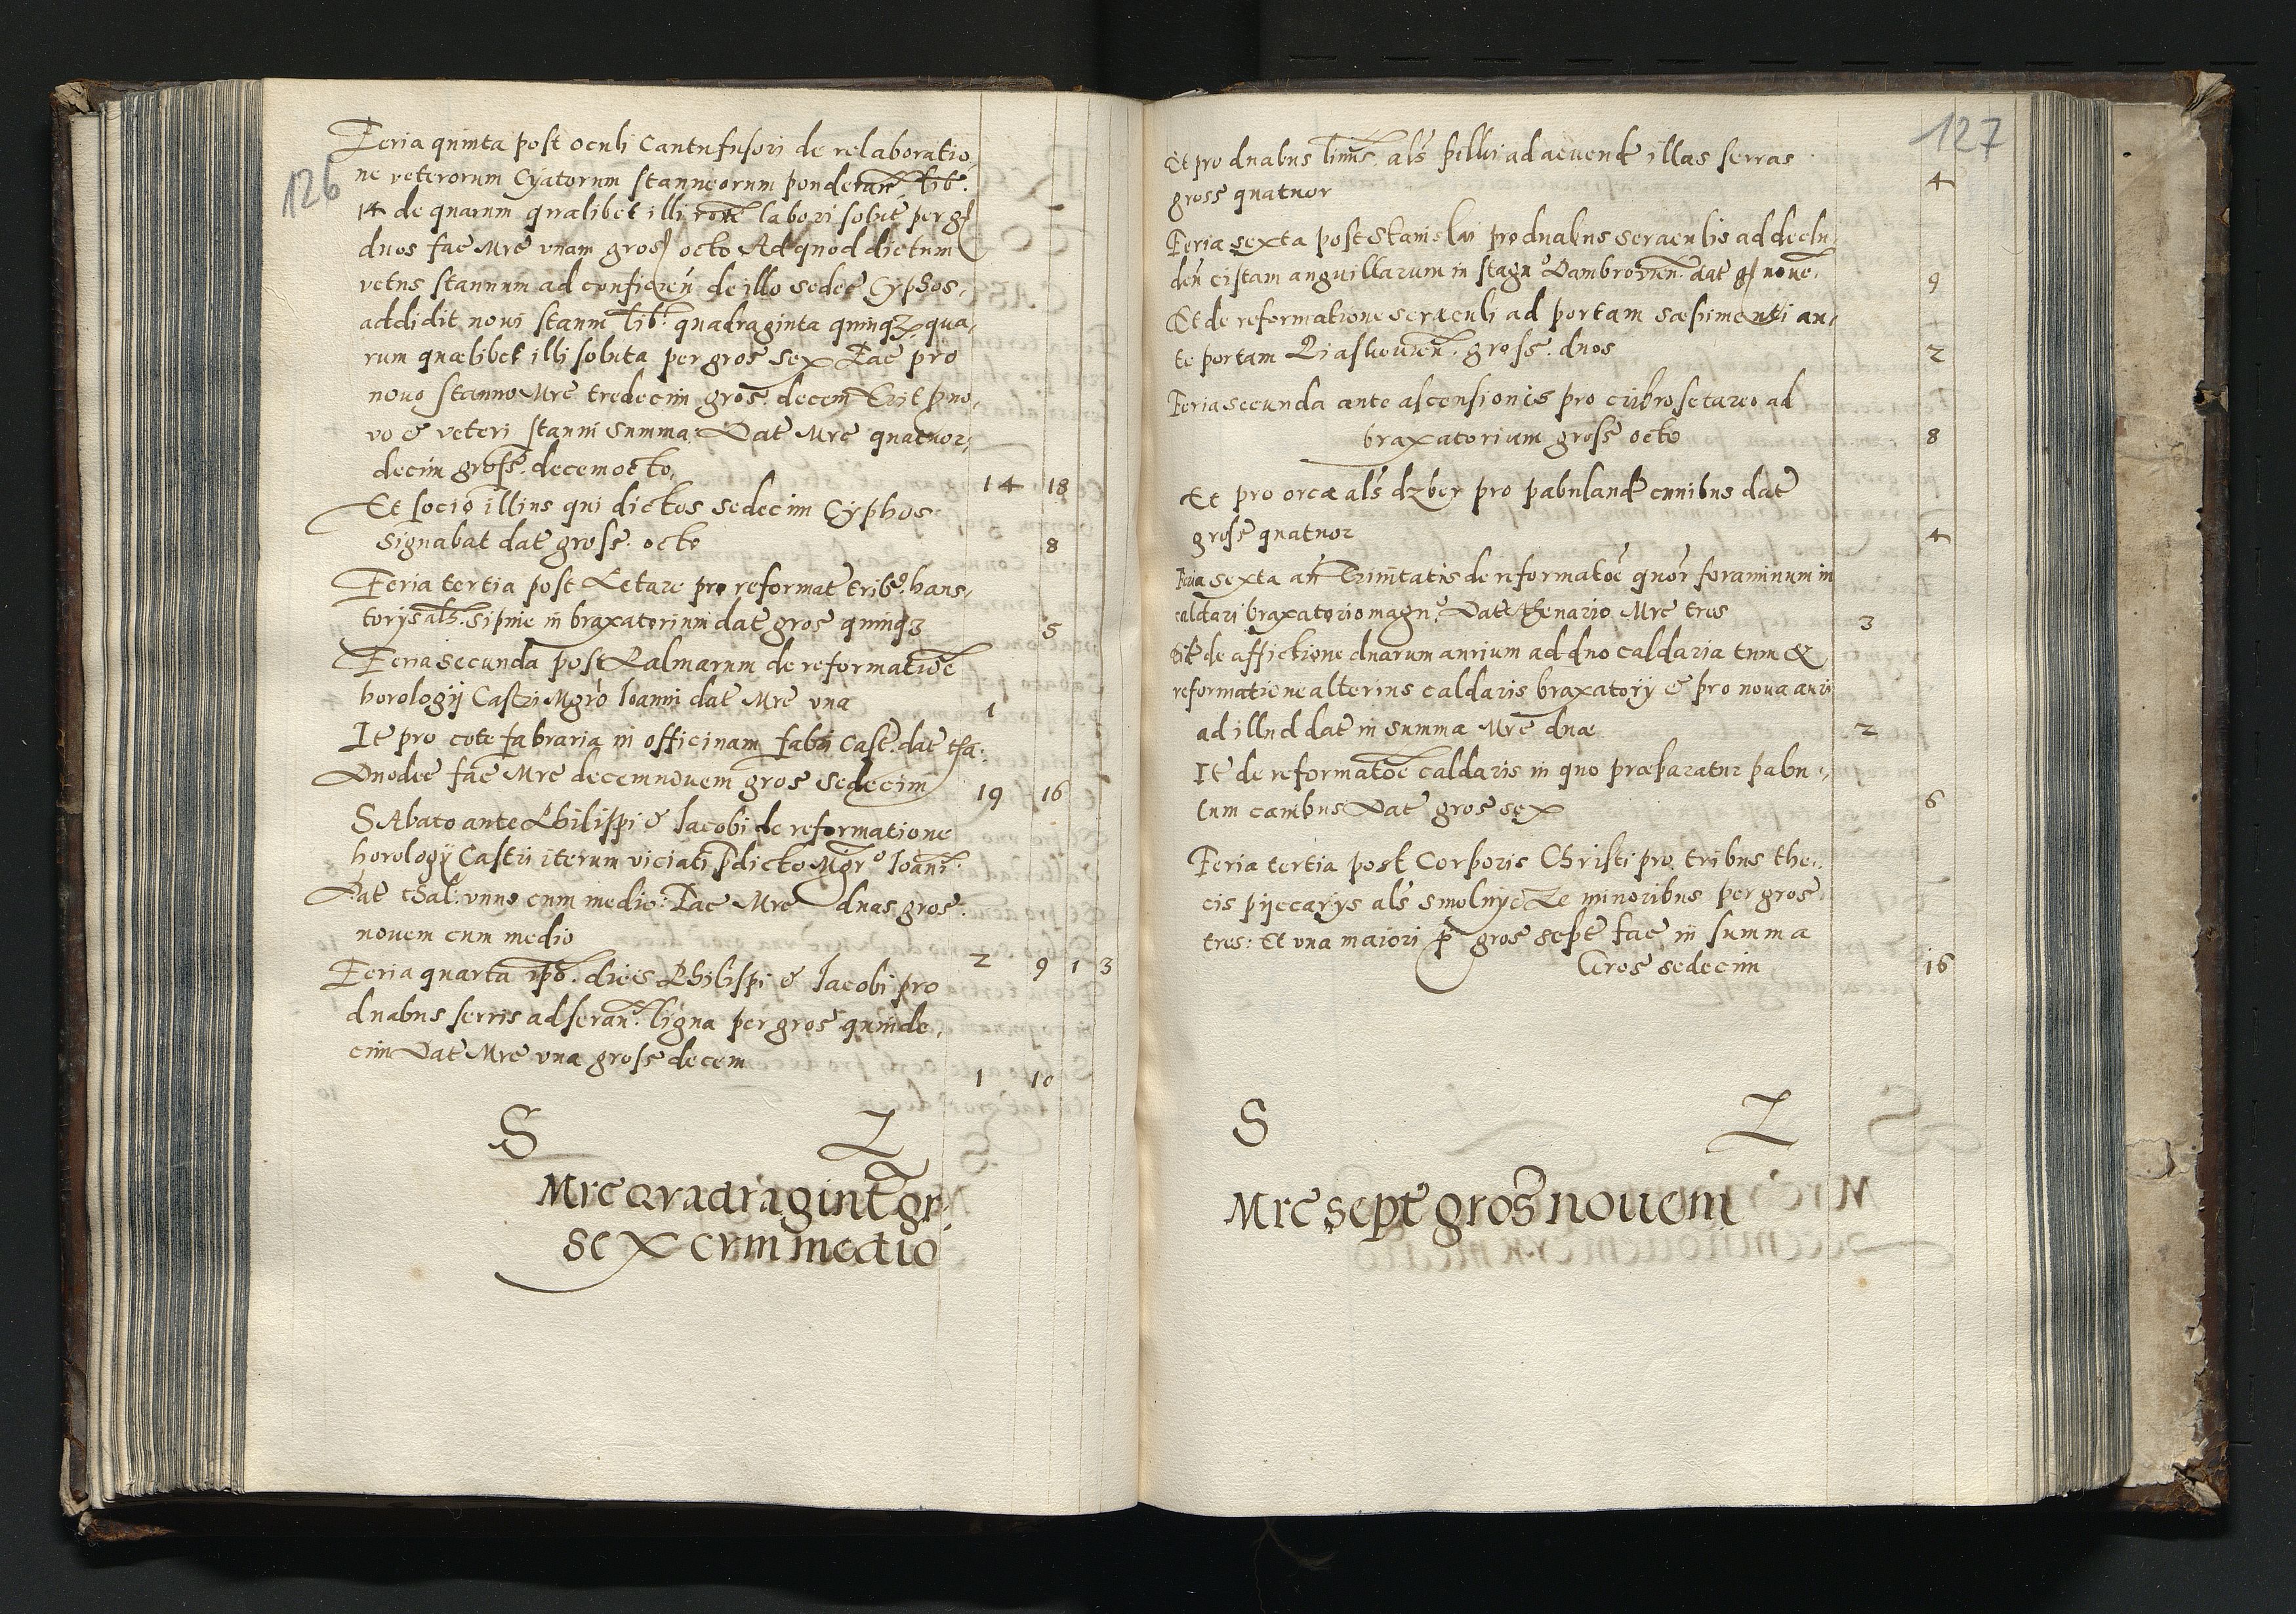 126
Feria quinta post oculi Cantufusori de relaboratio,
ne veterorum Cyatorum stanneorum ponderan̄ lib:
14 de quarum quælibet illi labori solut̄ per g̃
duos fac̄ Mrc̄ vnam gros octo Ad quod dictum
vetus stannum ad conficien̄ de illo sedec̄ Cyphos,
addidit noui stanni lib: quadraginta quinqʒ, qua,
rum quælibet illi soluta per gros̄ sex Fac̄ pro
nouo stanno Mrc̄ tredecim gros̄. decem Erit p no,
vo & veteri stanni summa. Dat̄ Mrc̄ quatuor,
decim gross̄. decemocto, 14 18
Et socio illius qui dictos sedecim Cyphos
signabat dat̄ gross̄. octo 8
Feria tertia post Letare pro reformat̄ tribꝰ. haus,
torijs als̄. sipnie in braxatorium dat̄ gros̄ quinqʒ 5
Feria secunda post Palmarum de reformatiōe
horologij Castri Mgr̄o Ioanni dat̄ Mrc̄ vna 1
It̄ pro cote fabraria in officinam fabri Cast̄. dat̄ tha:
Duodec̄ fac̄ Mrc̄ decemnouem gros̄ sedecim 19 16
SAbato ante Philippi & Iacobi de reformatione
horologij Castri iterum viciati p̄dicto Mgr̄o Ioann̄i:
Dat̄ thal: vnns cum medio: Fac̄ Mrc̄ duas gros̄.
novem cum medio 2 9 1 3
Feria quarta ip̄o. dieis Philippi & Iacobi pro
duabus serris ad seran̄. ligna per gros̄ quinde,
cim Dat̄ Mrc̄ vna gross̄ decem 1 10
S L
Mrc̄ Qvadragint̄ gr:
sex cvm medio
127
Et pro duabus lim̄is. als̄ pilkii ad acuend̄ illas serras
gross̄ quatuor 4
Feria sexta post Stanislai pro duabus seraculis ad declu,
den̄ cistam anguillarum in stagn̊ Dambrovien̄. dat̄ g̃ nouē. 9
Et de reformatione seraculi ad portam sæpimenti an,
te portam Piaskouien̄. gross̄. duos 2
Feria secunda ante ascensionis pro cribro setareo ad
braxatorium gross̄ octo 8
Et pro orcæ als̄ dzber pro pabuland̄ cunibus dat̄
gross̄ quatuor 4
Feria sexta an̄ Trinitatis de reformatōe quor̄ foraminum in
caldari braxatorio magn̊. Dat̄ Ahenario Mrc̄ tres 3
It̄ de affictione duarum aurium ad duo caldaria tum &
reformatione alterius caldaris braxatorij & pro noua auri
ad illud dat̄ in summa Mrc̄ duæ 2
It̄ de reformatōe caldaris in quo præparatur pabu,
lum canibus Dat̄ gros̄ sex 6
Feria tertia post Corporis Christi pro tribus the,
cis pijccarijs als̄ smolnycze minoribus per gros̄
tres: Et vna maiori p̄ gros̄ sept̄ fac̄ in summa
Gros̄ sedecim 16
S L
Mrc̄ sept̄ gros̄ nouem